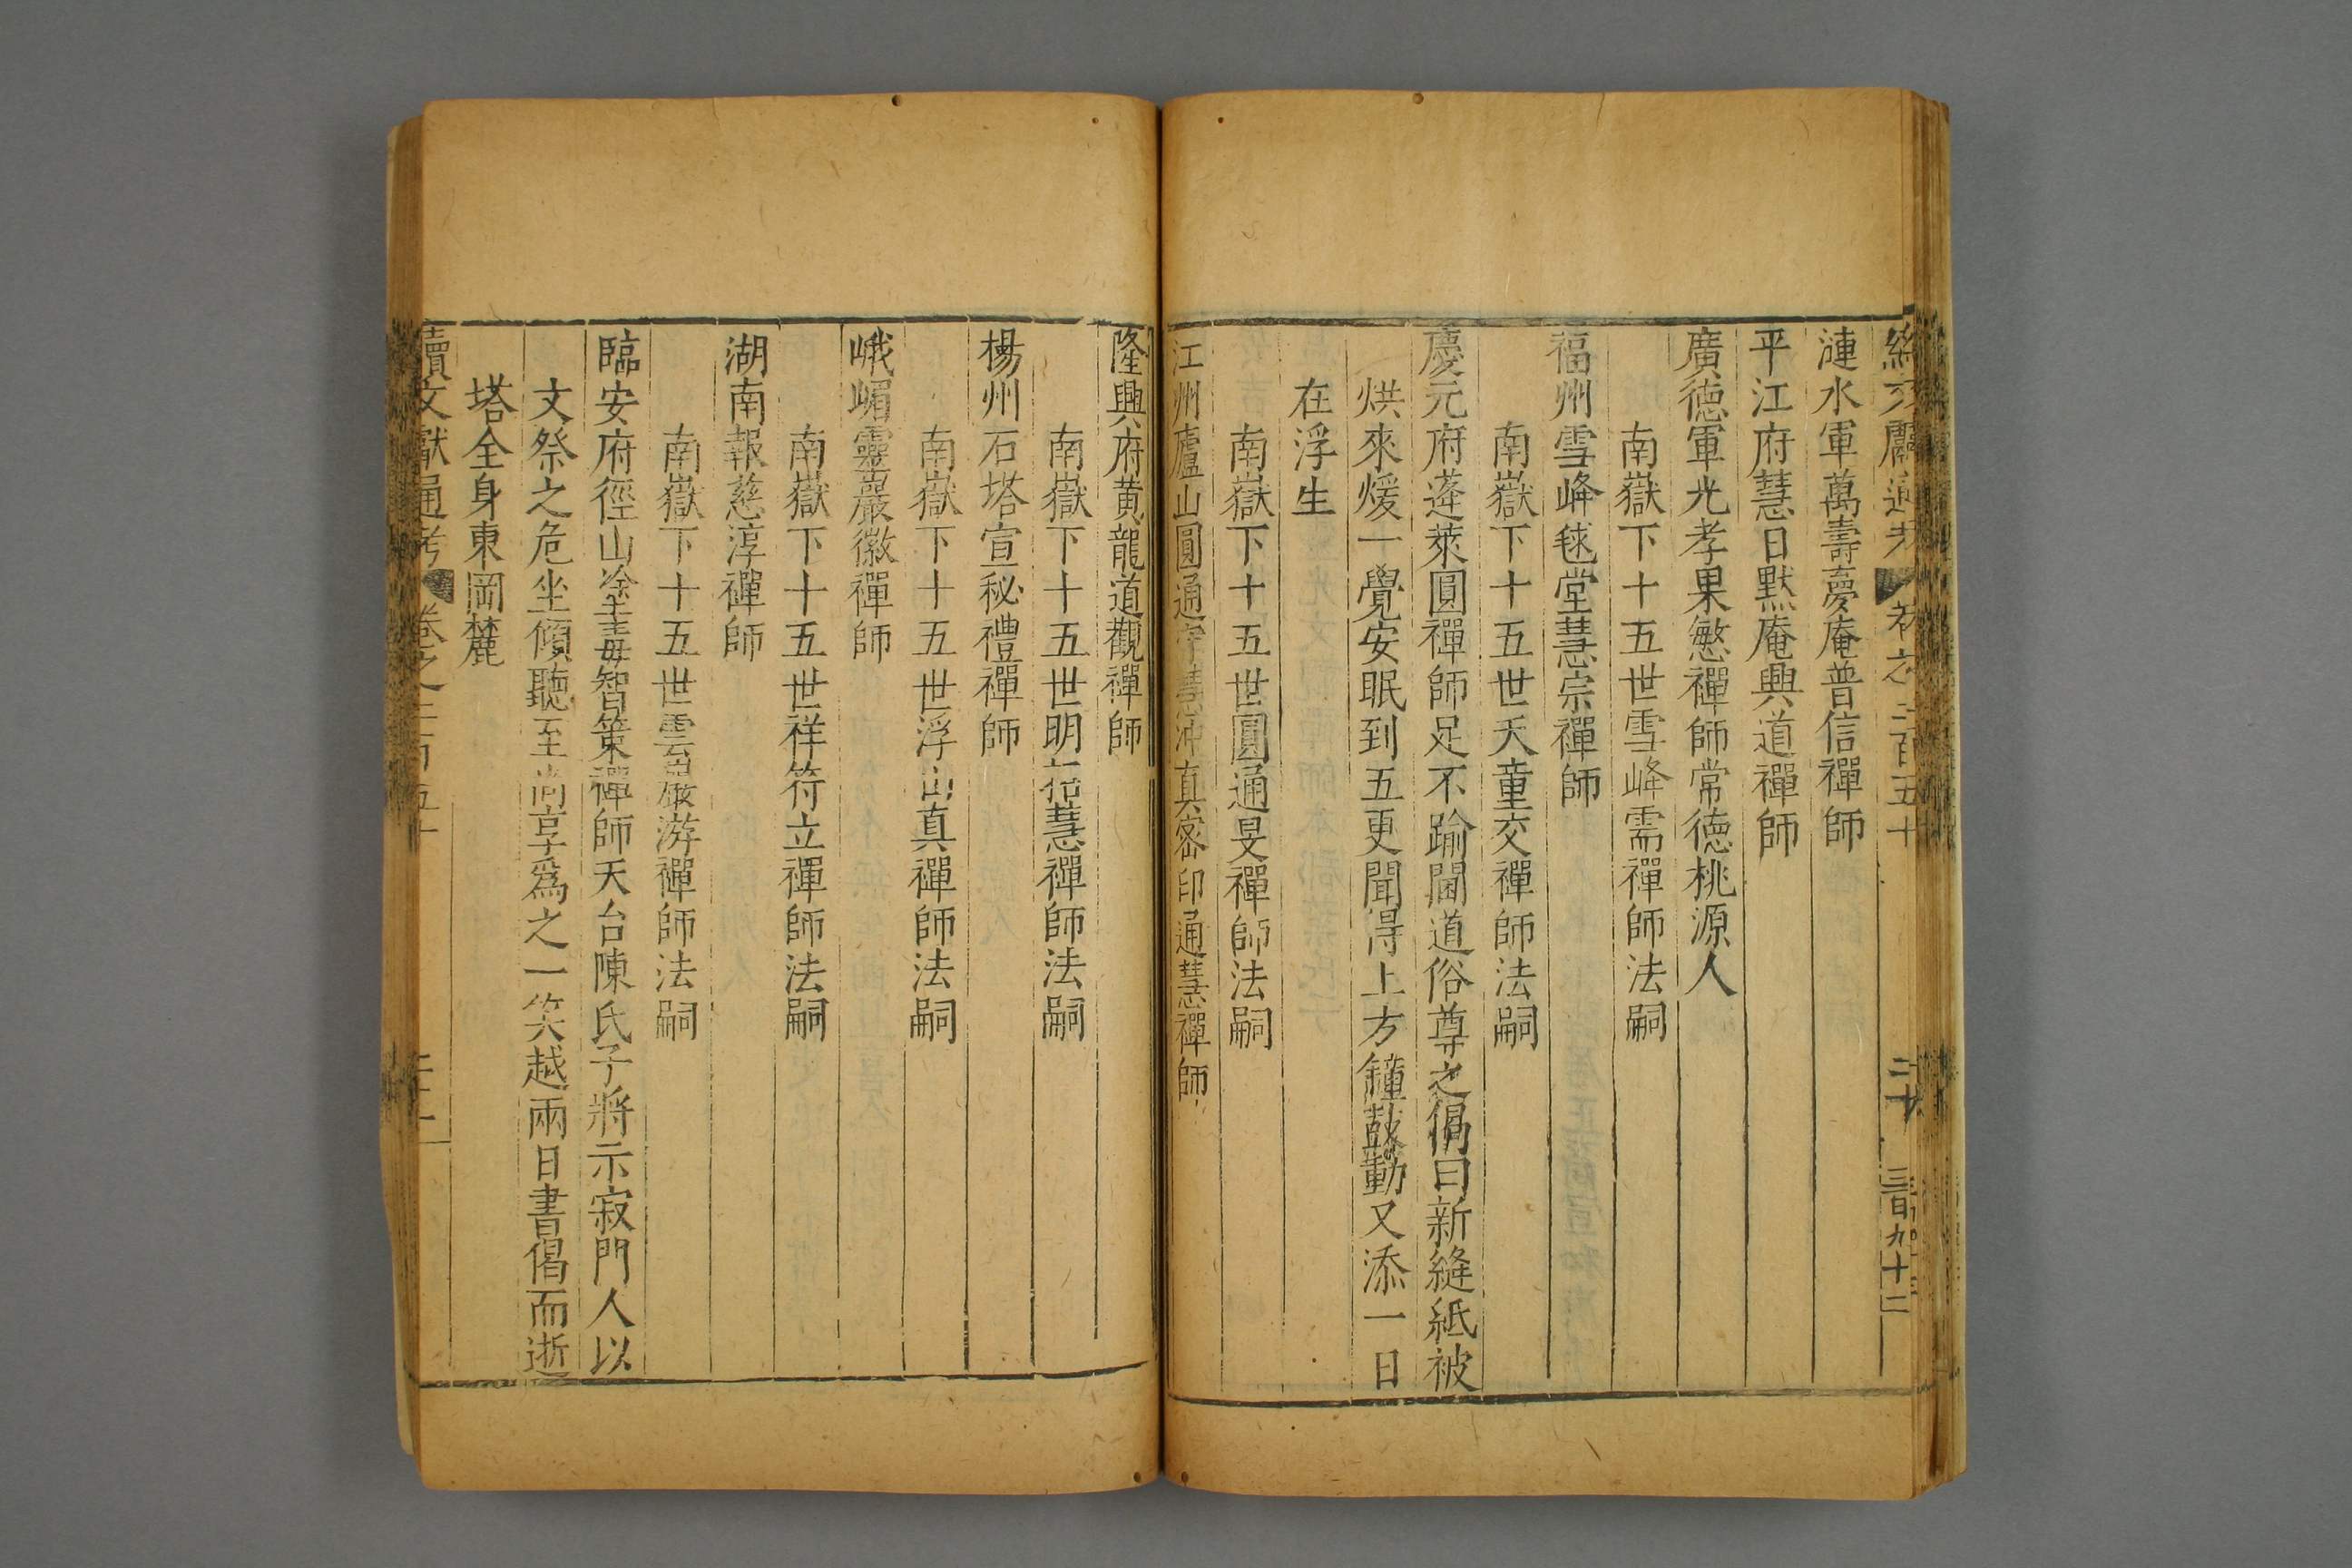 續文獻通考 卷之二百五十 二十 三百九十二
漣水軍萬壽夢庵普信禪師
平江府慧日默庵興道禪師
廣德軍光孝果慜禪師常德桃源人
南嶽下十五世雪峰需禪師法嗣
福州雪峰毬堂慧宗禪師
南嶽下十五世天童交禪師法嗣
慶元府蓬萊圓禪師足不踰閫道俗尊之偈曰新縫紙被
烘來煖一覺安眠到五更聞得上方鐘鼓動又添一日
在浮生
南嶽下十五世圓通旻禪師法嗣
江州廬山圓通守慧沖真密印通慧禪師
隆興府黃龍道觀禪師
南嶽下十五世明招慧禪師法嗣
楊州石塔宣秘禮禪師
南嶽下十五世浮山真禪師法嗣
峨嵋靈巖徽禪師
南嶽下十五世祥符立禪師法嗣
湖南報慈淳禪師
南嶽下十五世雲巖游禪師法嗣
臨安府徑山塗毒智策禪師天台陳氏子將示寂門人以
文祭之危坐傾聽至尚享爲之一笑越兩日書偈而逝
塔全身東岡麓
續文獻通考 卷之二百五十